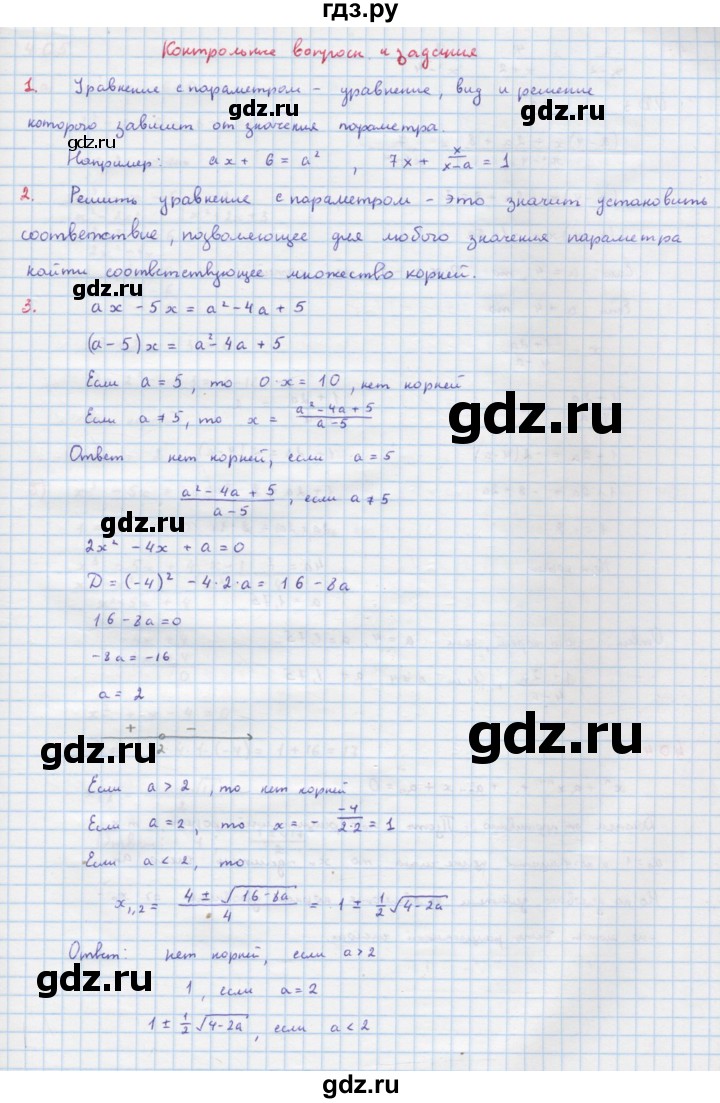 гдз.ру
Контрольные вопросы и задания
1. Уравнение с параметром – уравнение, вид и решение
gdz.ru
которого зависит от значения параметра.
gdz.ru
Например: ax + 6 = a² , 7x + x/(x-a) = 1
2. Решить уравнение с параметром – это значит установить
соответствие, позволяющее для любого значения параметра
найти соответствующее множество корней.
gdz.ru
3. ax - 5x = a² - 4a + 5
(a - 5)x = a² - 4a + 5
Если a = 5, то 0·x = 10, нет корней
Если a ≠ 5, то x = (a² - 4a + 5)/(a - 5)
gdz.ru
Ответ нет корней, если a = 5
(a² - 4a + 5)/(a - 5), если a ≠ 5
gdz.ru
2x² - 4x + a = 0
D = (-4)² - 4·2·a = 16 - 8a
16 - 8a = 0
-8a = -16
a = 2
+ -
2
gdz.ru
gdz.ru
Если a > 2, то нет корней
Если a = 2, то x = - -4/(2·2) = 1
Если a < 2, то
x₁,₂ = (4 ± √(16-8a))/4 = 1 ± 1/2 √(4-2a)
Ответ: нет корней, если a > 2
gdz.ru
1, если a = 2
gdz.ru
1 ± 1/2 √(4-2a), если a < 2
gdz.ru